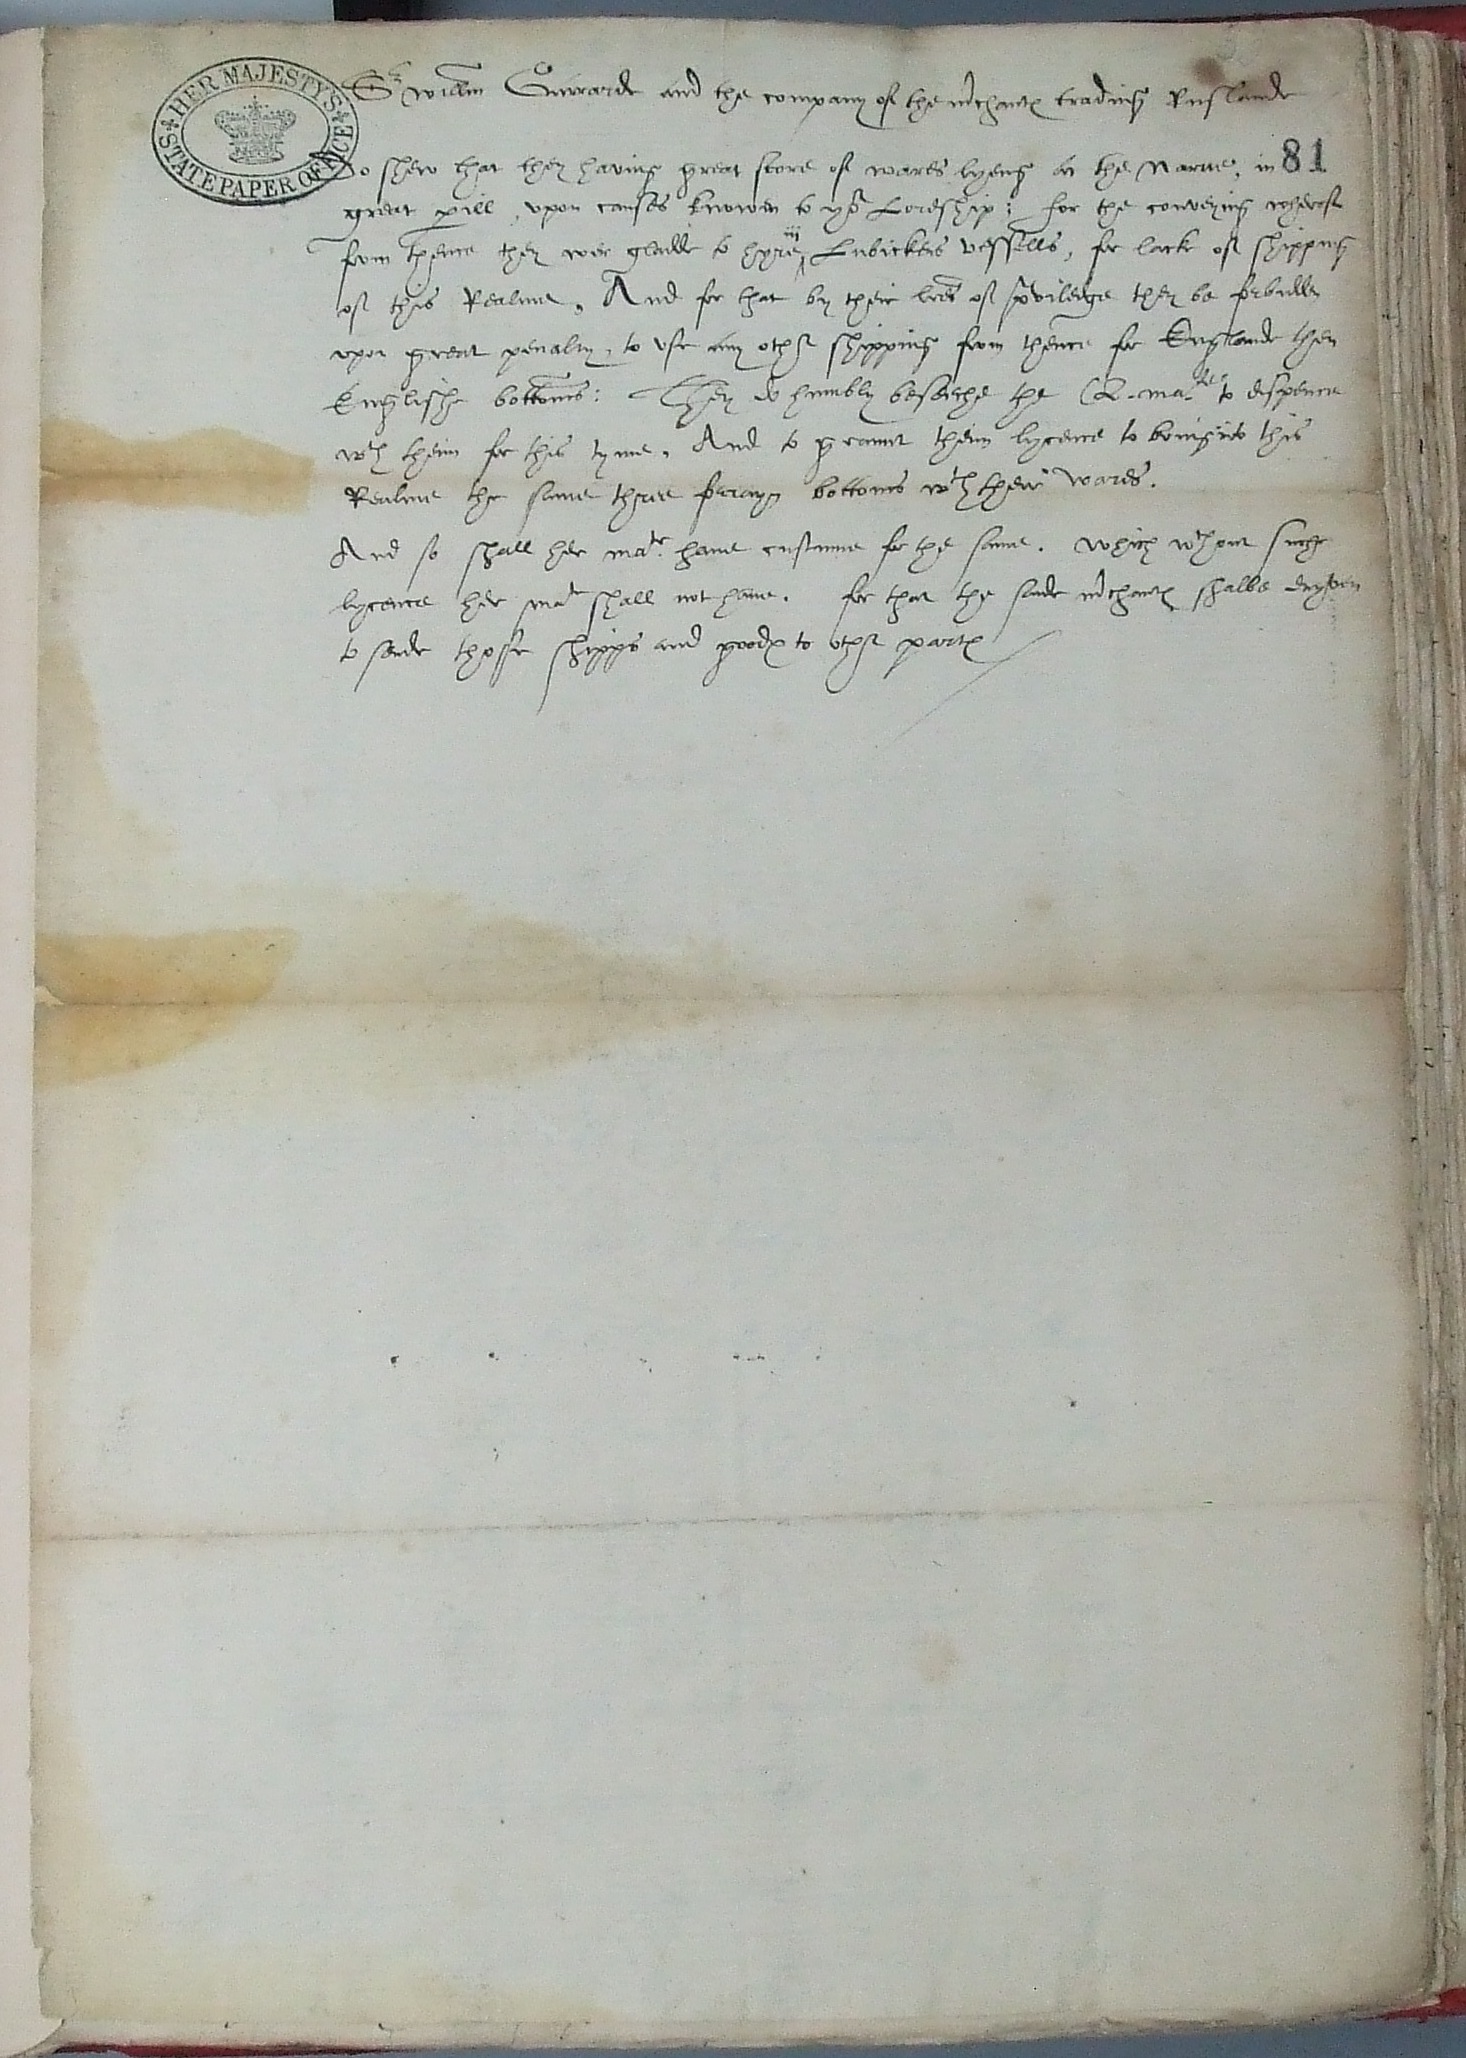 HER MAJESTY'S STATE PAPER OFFICE
Sr Willm Garrarde and the company of the mchantꝭ trading Ruslande
81
Do shew that they having great store of wares lyeng at the Narue, in
great pill, vpon causes knowen to yor Lordship: for the conveying wherof
from thence they wer gladde to hyre iij Lubickers vessells, for lack of shipping
of this Realme. And for that by their lres of pviledge they be forbidden
vpon great penalty, to vse any other shipping from thence for Englande then
Englishe bottoms: They do humbly beseche the Q. matie to dispence
wth theim for this tyme. And to graunt theim lycence to bring into this
Realme the same three forrayn bottoms wth their wares.
And so shall her matie have custume for the same. Which wthout suche
lycence her matie shall not have. for that the saide mchantꝭ shalbe dryven
to sende those shipps and goodꝭ to other partꝭ